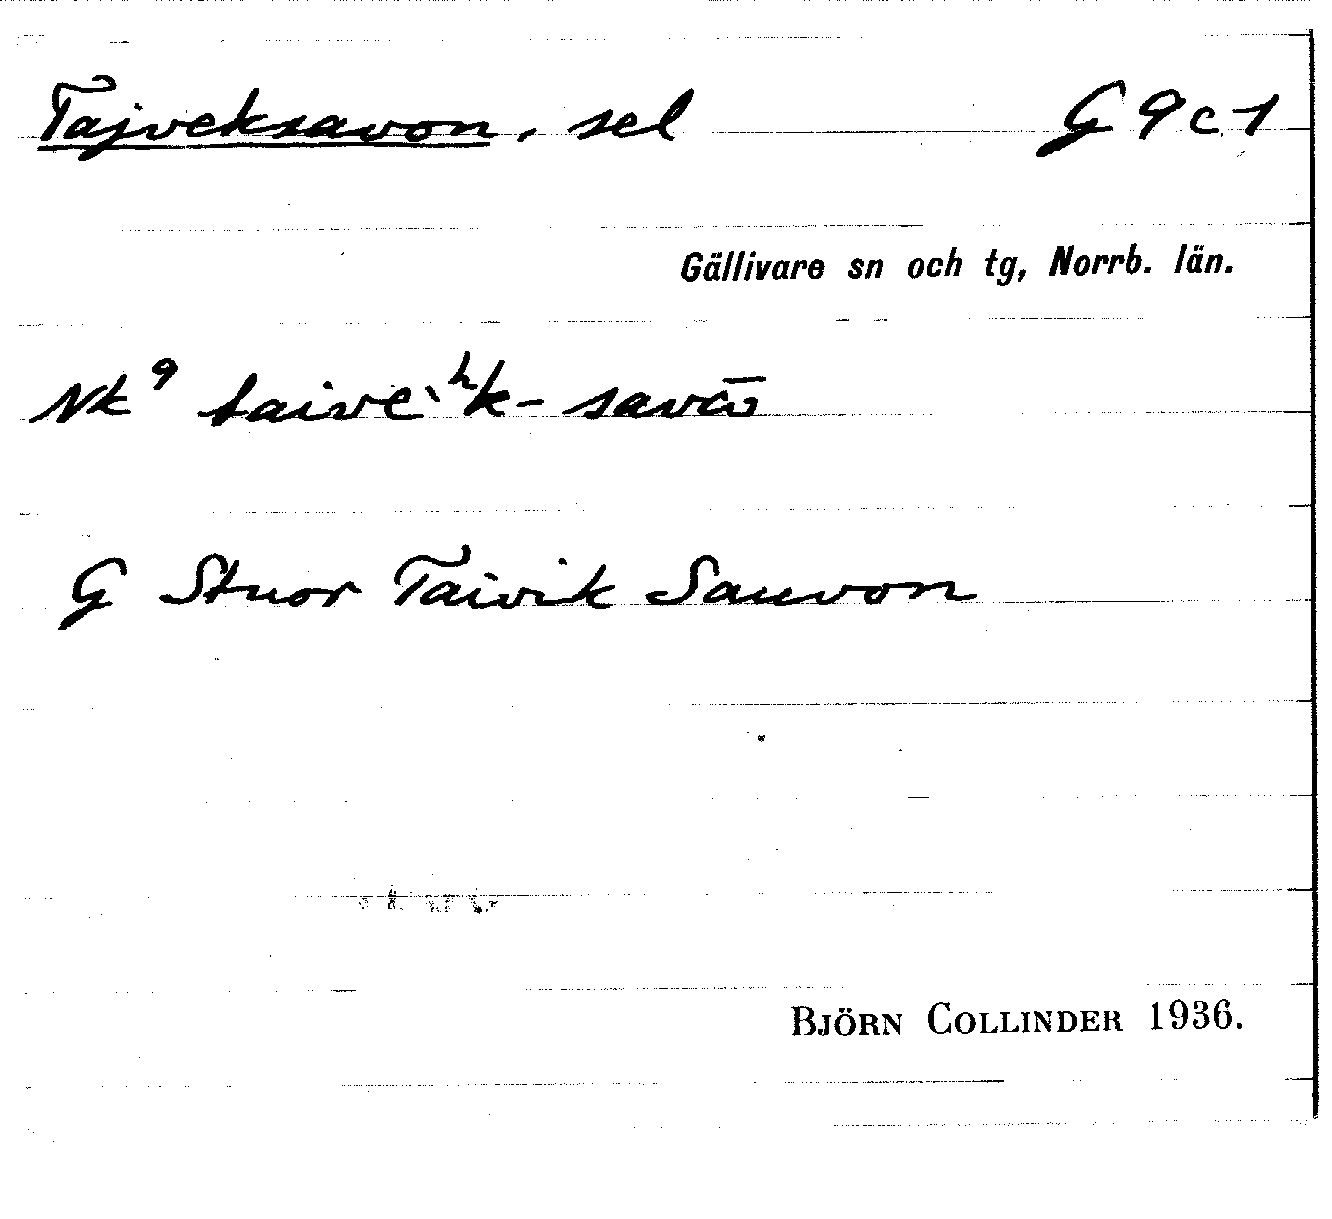 Tajveksavon, sel G 9 c 1
Gällivare sn och tg, Norrb. län.
Nk 9 taive`ʰk-
G Stuor Taivik Sauvon
BJÖRN COLLINDER 1936.